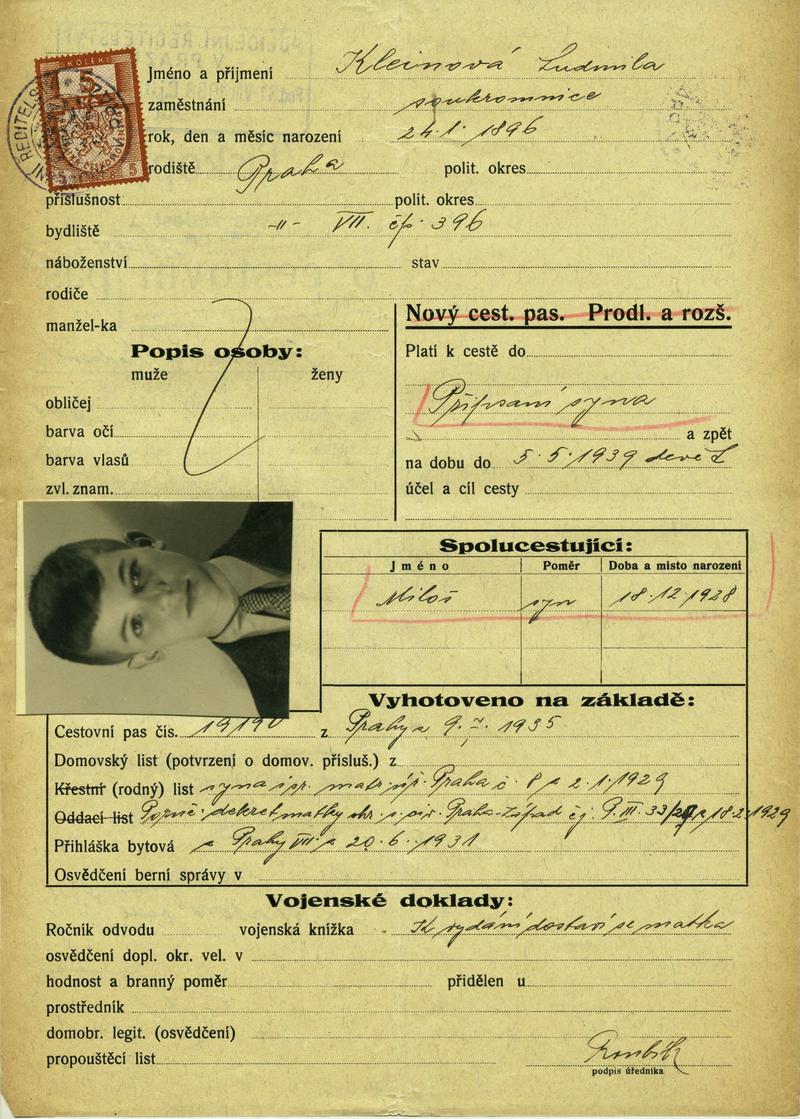 KOLEK
5
5 5
ŘEDITELS
Jméno a příjmení Kleinová Ludmila
zaměstnání soukromnice
rok, den a měsíc narození 24.1.1896
rodiště Praha polit. okres
příslušnost polit. okres
bydliště -"- VII. čp. 396
náboženství stav
rodiče
manžel-ka
Nový cest. pas. Prodl. a rozš.
Popis osoby:
muže ženy
obličej
barva očí
barva vlasů
zvl. znam.
Platí k cestě do
Připsaní syna
a zpět
na dobu do 5.5.1939
účel a cíl cesty
Spolucestující:
Jméno Poměr Doba a místo narození
Miloš syn 18.12.1928
Vyhotoveno na základě:
Cestovní pas čís. 19190 z Prahy z 9.V.1935
Domovský list (potvrzení o domov. přísluš.) z
Křestní (rodný) list syna isr. matr. úř. Praha č. 8 z 2.1.1929
Oddací list dekret matky Praha-Západ čj. P.III.33/29 z 18.2.1929
Přihláška bytová z Prahy VII z 20.6.1931
Osvědčení berní správy v
Vojenské doklady:
Ročník odvodu vojenská knížka - K vydání dostaví se matka
osvědčení dopl. okr. vel. v
hodnost a branný poměr přidělen u
prostředník
domobr. legit. (osvědčení)
propouštěcí list
podpis úředníka